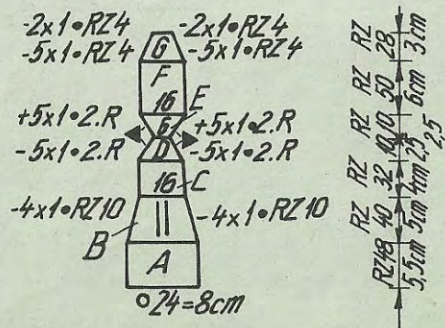 -2x1•RZ4 -2x1•RZ4
-5x1•RZ4 G -5x1•RZ4
F
16 E
+5x1•2.R 6 +5x1•2.R
-5x1•2.R D -5x1•2.R
16 C
-4x1•RZ10 -4x1•RZ10
B
A
O 24=8cm
RZ 28 3cm
RZ 50 6cm
RZ 10 2,5
10 2,5
RZ 32 4cm
RZ 40 5cm
RZ48 5,5cm